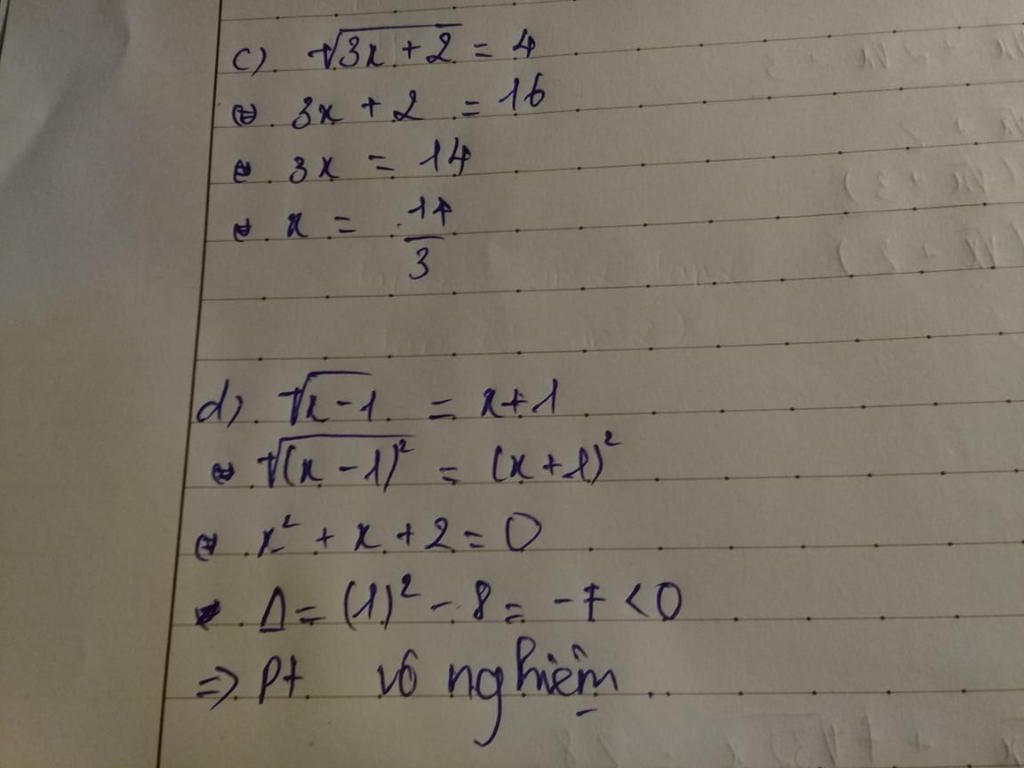 c) √(3x + 2) = 4
⇔ 3x + 2 = 16
⇔ 3x = 14
⇔ x = 14/3
d) √(x - 1) = x + 1
⇔ √((x - 1)²) = (x + 1)²
⇔ x² + x + 2 = 0
Δ = (1)² - 8 = -7 < 0
=> Pt vô nghiệm